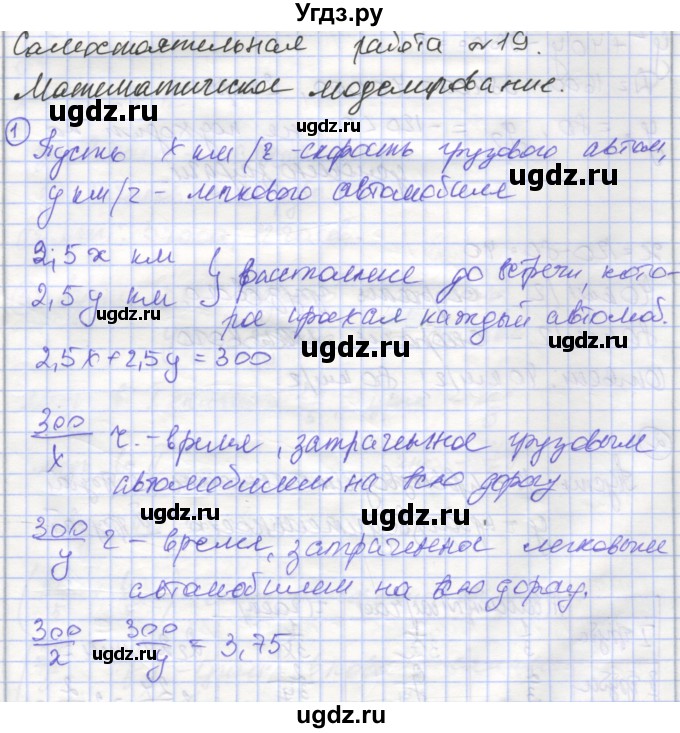 Угдз.ру
Самостоятельная работа №19.
ugdz.ru
Математическое моделирование.
ugdz.ru
ugdz.ru
1 Пусть x км/ч - скорость грузового автом,
ugdz.ru
y км/ч - легкового автомобиля
2,5x км
2,5y км } расстояние до встречи, кото-
ugdz.ru
ugdz.ru
рое проехал каждый автомоб.
ugdz.ru
ugdz.ru
2,5x + 2,5y = 300
300/x ч. - время, затраченное грузовым
ugdz.ru
ugdz.ru
автомобилем на всю дорогу
ugdz.ru
ugdz.ru
300/y ч - время, затраченное легковым
ugdz.ru
автомобилем на всю дорогу.
ugdz.ru
300/x - 300/y = 3,75
ugdz.ru
ugdz.ru
ugdz.ru